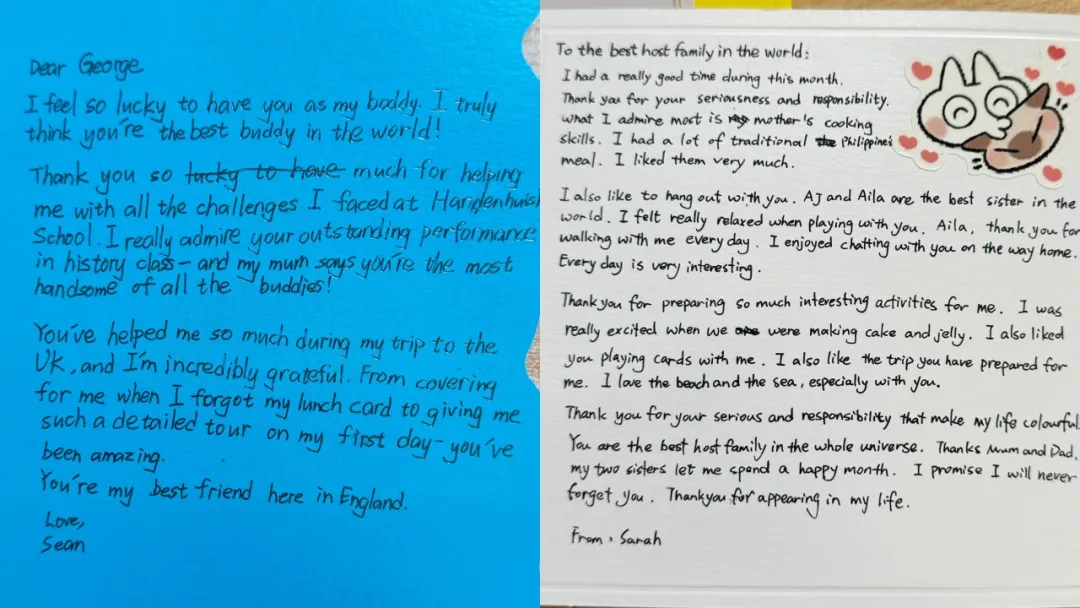 Dear George
I feel so lucky to have you as my buddy. I truly
think you're the best buddy in the world!
Thank you so lucky to have much for helping
me with all the challenges I faced at Hardenhuish
School. I really admire your outstanding performance
in history class - and my mum says you're the most
handsome of all the buddies!
You've helped me so much during my trip to the
UK, and I'm incredibly grateful. From covering
for me when I forgot my lunch card to giving me
such a detailed tour on my first day - you've
been amazing.
You're my best friend here in England.
Love,
Sean
To the best host family in the world:
I had a really good time during this month.
Thank you for your seriousness and responsibility.
what I admire most is mother's cooking
skills. I had a lot of traditional the Philippines
meal. I liked them very much.
I also like to hang out with you. AJ and Aila are the best sister in the
world. I felt really relaxed when playing with you. Aila, thank you for
walking with me every day. I enjoyed chatting with you on the way home.
Every day is very interesting.
Thank you for preparing so much interesting activities for me. I was
really excited when we were making cake and jelly. I also liked
you playing cards with me. I also like the trip you have prepared for
me. I love the beach and the sea, especially with you.
Thank you for your serious and responsibility that make my life colourful.
You are the best host family in the whole universe. Thanks Mum and Dad,
my two sisters let me spend a happy month. I promise I will never
forget you. Thankyou for appearing in my life.
From, Sarah